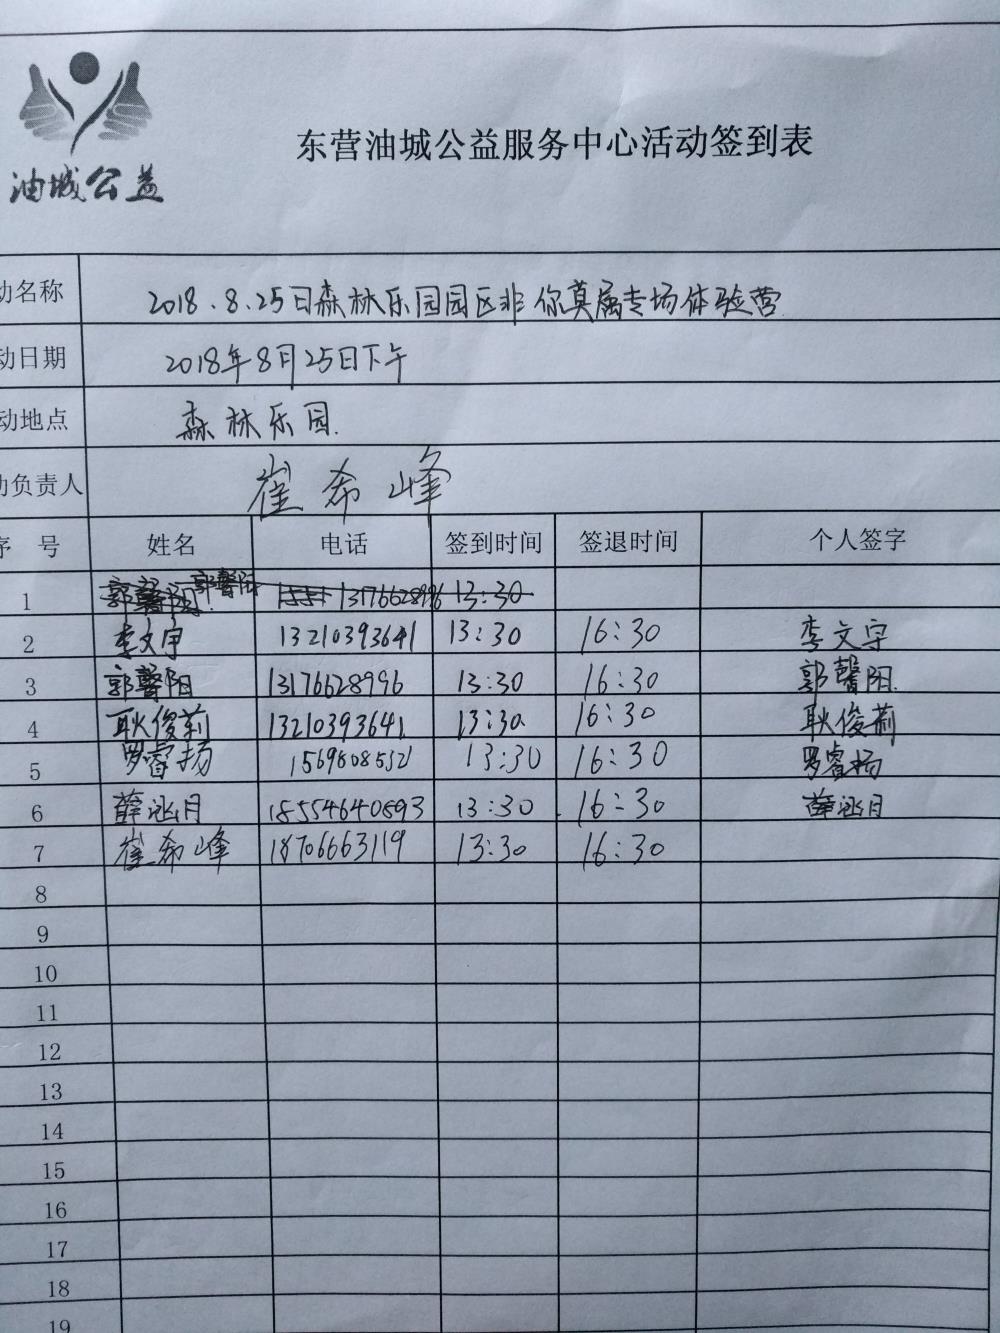 油城公益
东营油城公益服务中心活动签到表
动名称 2018.8.25日森林乐园园区非你莫属专场体验营
动日期 2018年8月25日下午
动地点 森林乐园.
负责人 崔希峰
序 号 姓名 电话 签到时间 签退时间 个人签字
1 郭馨阳 郭馨阳 1551 13176628996 13:30
2 李文宇 13210393641 13:30 16:30 李文宇
3 郭馨阳 13176628996 13:30 16:30 郭馨阳.
4 耿俊莉 13210393641. 13:30 16:30 耿俊莉
5 罗睿扬 13:30 16:30 罗睿扬
6 薛泓月 18554640893 13:30 16:30 薛泓月
7 崔希峰 18706663119 13:30 16:30
8
9
10
11
12
13
14
15
16
17
18
19